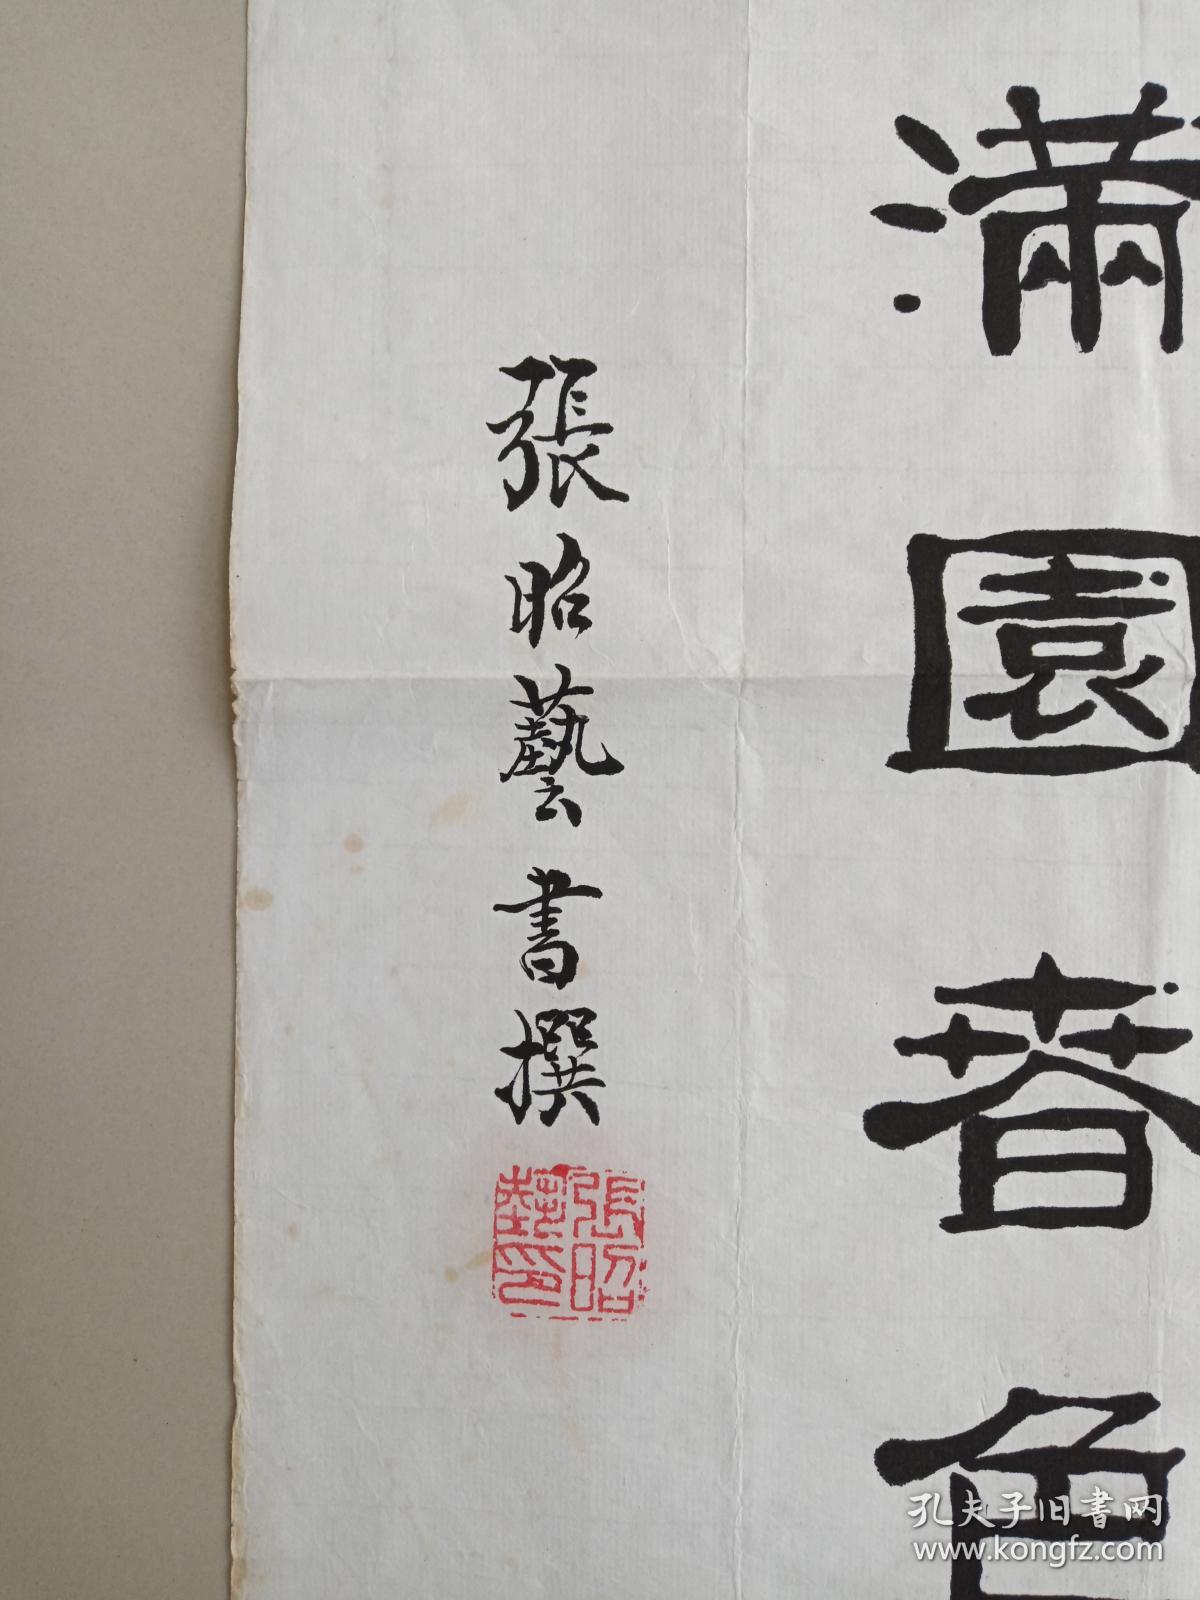 滿園春色
張昭藝書撰
張昭藝印
孔夫子旧書网
www.kongfz.com